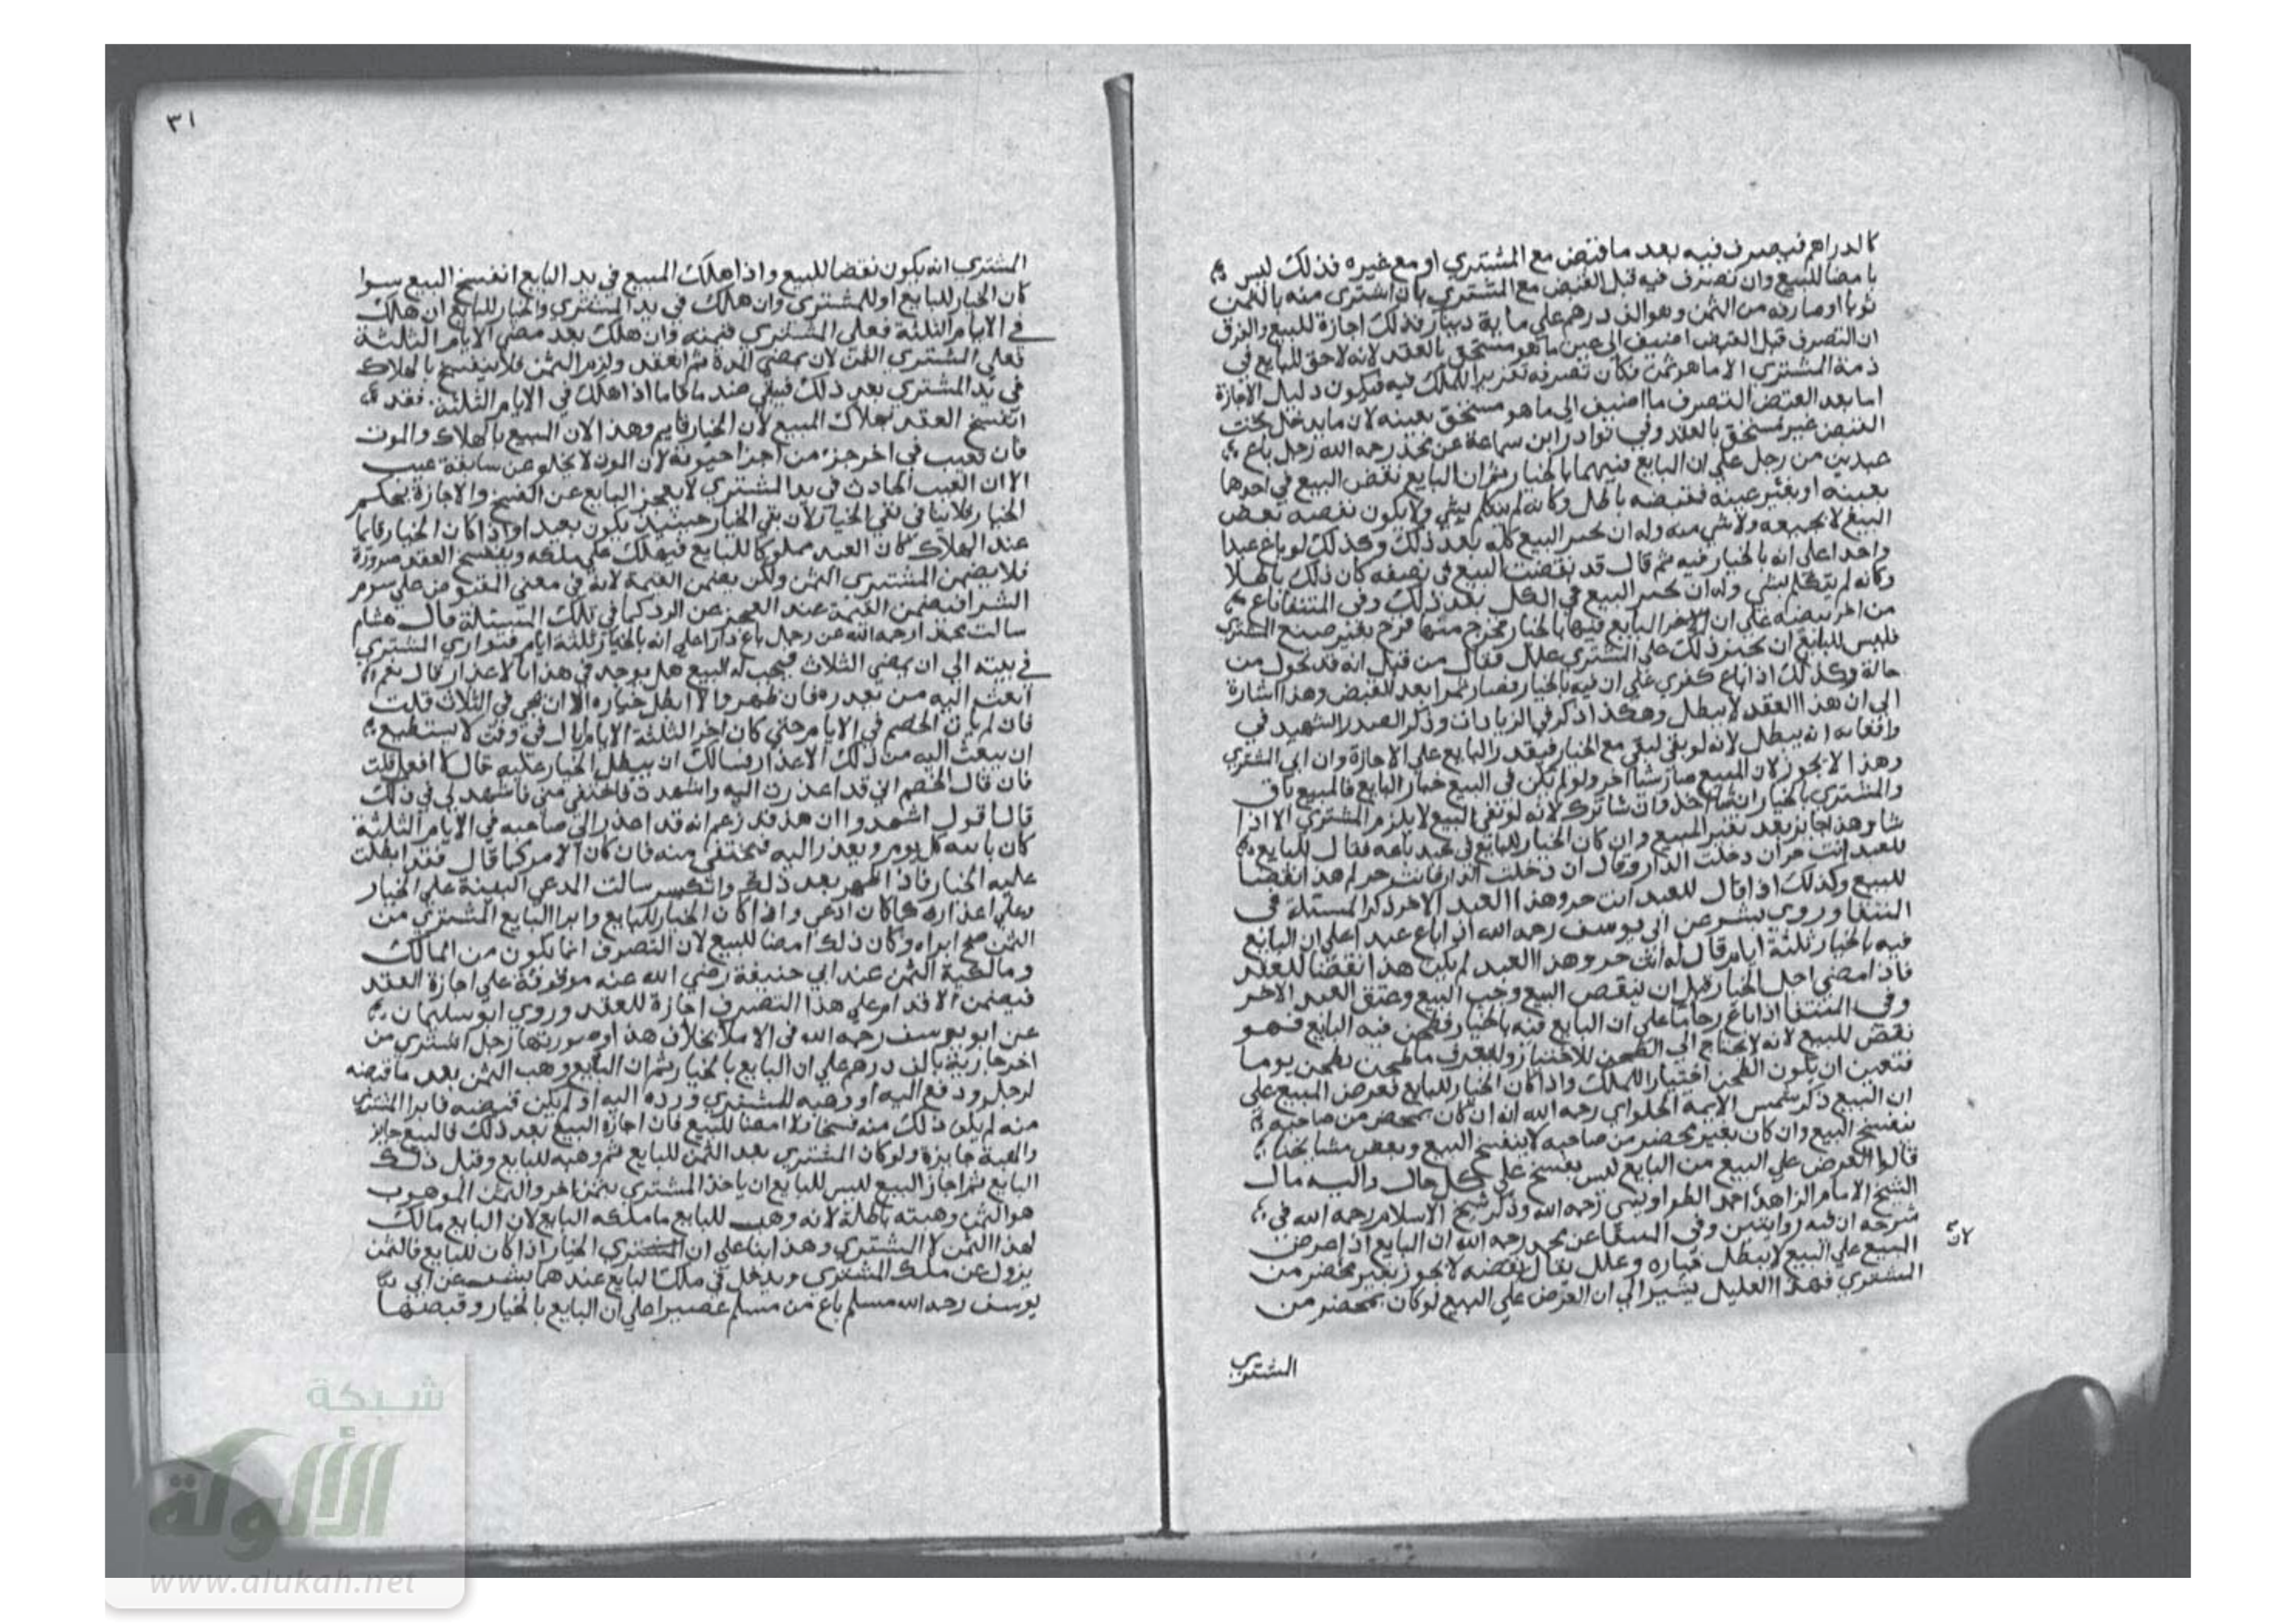 كالدراهم فيصرف فيه بعد ما قبض مع المشتري او مع غيره فذلك ليس
بامضا للبيع وان تصرف فيه قبل القبض مع المشتري بان اشترى منه بالثمن
ثوبا او صارفه من الثمن وهو الف درهم علي ماية دينار فذلك اجازة للبيع والفرق
ان التصرف قبل القبض اضيف الى عين ما هو مستحق بالعقد لانه لا حق للبايع في
ذمة المشتري الا ما هو ثمن فكان تصرفه تقريرا للملك فيه فيكون دليل الاجازة
اما بعد القبض التصرف ما اضيف الي ما هو مستحق بعينه لان ما يدخل تحت
القبض غير مستحق بالعقد وفي نوادر ابن سماعة عن محمد رحمه الله رجل باع
عبدين من رجل علي ان البايع فيهما بالخيار ثم ان البايع نقض البيع في احدهما
بعينه او بغير عينه فنقضه باطل وكانه لم يتكلم بشي ولا يكون نقضه نقض
البيع لا بجميعه ولا شي منه وله ان يجيز البيع كله بعد ذلك وكذلك لو باع عبدا
واحدا علي انه بالخيار فيه ثم قال قد نقضت البيع في نصفه كان ذلك باطلا
وكانه لم يتكلم بشي وله ان يجيز البيع في الكل بعد ذلك وفي المنتقا باع
من اخر بيضة علي ان البايع فيها بالخيار فخرج منها فرخ بغير صنع المشتري
فليس للبايع ان يجيز ذلك علي المشتري علل فقال من قبل انه قد تحول من
حالة وكذلك اذا باع كفري علي ان فيه بالخيار فصار تمرا بعد القبض وهذا اشارة
الي ان هذا العقد لا يبطل وهكذا ذكر في الزيادات وذكر الصدر الشهيد في
واقعاته انه يبطل لانه لو بقي لبقي مع الخيار فيقدر البايع علي الاجازة وان ابي المشتري
وهذا لا يجوز لان المبيع صار شيا اخر ولو لم يكن في البيع خيار البايع فالمبيع باق
والمشتري بالخيار ان شا اخذ وان شا ترك لانه لو بقي البيع لا يلزم المشتري الا اذا
شا وهذا جايز بعد تغير المبيع وان كان الخيار للبايع في عبد باعه فقال للبايع
للعبد انت حر ان دخلت الدار او قال ان دخلت الدار فانت حر لم هذا نقضا
للبيع وكذلك اذا قال للعبد انت حر وهذا العبد الاخر ذكر المسئلة في
المنتقا وروي بشر عن ابي يوسف رحمه الله اذا باع عبدا علي ان البايع
فيه بالخيار ثلثة ايام قال له انت حر وهذا العبد لم يكن هذا نقضا للعقد
فاذا مضي اجل الخيار قبل ان ينقض البيع وجب البيع وعتق العبد الاخر
وفي المنتقا اذا باع رحا ما علي ان البايع فيه بالخيار فطحن فيه البايع فهو
نقض للبيع لانه لا يحتاج الي الطحن للاختبار وليعرف ما طحن يوما
فتعين ان يكون الطحن اختيارا للملك واذا كان الخيار للبايع فعرض المبيع علي
ان البيع ذكر شمس الايمة الحلواي رحمه الله انه ان كان بمحضر من صاحبه
ينفسخ البيع وان كان بغير محضر من صاحبه لا ينفسخ البيع وبعض مشايخنا
قالوا العرض علي البيع من البايع ليس بفسخ علي كل حال واليه مال
الشيخ الامام الزاهد احمد الطواويسي رحمه الله وذكر شيخ الاسلام رحمه الله في
شرحه ان فيه روايتين وفي المنتقا عن محمد رحمه الله ان البايع اذا عرض
لان
المبيع علي البيع لا يبطل خياره وعلل فقال نقضه لا يجوز بغير محضر من
المشتري فهذا التعليل يشير الي ان العرض علي البيع لو كان بمحضر من
المشتري
٣١
المشتري انه يكون نقضا للبيع واذا هلك المبيع في يد البايع انفسخ البيع سوا
كان الخيار للبايع او للمشتري وان هلك في يد المشتري والخيار للبايع ان هلك
في الايام الثلثة فعلي المشتري قيمته وان هلك بعد مضي الايام الثلثة
فعلي المشتري الثمن لان بمضي المدة تم العقد ولزم الثمن فلا ينفسخ بالهلاك
في يد المشتري بعد ذلك فيبقي ضده ما كان اما اذا هلك في الايام الثلثة فقد
انفسخ العقد بهلاك المبيع لان الخيار قايم وهذا لان المبيع بالهلاك والموت
فان تعيب في اخر جزء من اجزا حيوته لان الموت لا يخلو عن سابقة عيب
الا ان العيب الحادث في يد المشتري لا يعجز البايع عن الفسخ والاجازة بحكم
الخيار فلا ينافي بقي الخيار لان بقي الخيار حينيذ يكون بعد او اذا كان الخيار قايما
عند الهلاك كان العبد مملوكا للبايع فيهلك علي ملكه وينفسخ العقد ضرورة
فلا يضمن المشتري الثمن ولكن يضمن القيمة لانه في معني المقبوض علي سوم
الشرا فيضمن القيمة عند العجز عن الرد كما في تلك المسئلة قال هشام
سالت محمدا رحمه الله عن رجل باع دارا علي انه بالخيار ثلثة ايام فتواري المشتري
في بيته الي ان يمضي الثلاث فيجب له البيع هل يوجد في هذا بالاعذار قال نعم
ابعث اليه من يعذره فان ظهر والا ابطل خياره الا ان يجي في الثلاث قلت
فان لم يات الخصم في الايام حتى كان اخر الثلثة الايام قال في وقت لا يستطيع
ان يبعث اليه من ذلك الاعذار فسالك ان يبطل الخيار عليه قال لا افعل قلت
فان قال الخصم اني قد اعذرت اليه واشهدت فاختفي مني فاشهد لي في ذلك
قال اقول اشهدوا ان هذا قد زعم انه قد اعذر الي صاحبه في الايام الثلثة
كان ياتيه كل يوم ويعذر اليه فيختفي منه فان كان الامر كما قال فقد ابطلت
عليه الخيار فاذا ظهر بعد ذلك وانكر سالت المدعي البينة علي الخيار
وعلي اعذاره كما كان ادعي واذا كان الخيار للبايع وابرا البايع المشتري من
الثمن صح ابراه وكان ذلك امضا للبيع لان التصرف انما يكون من المالك
ومالكية الثمن عند ابي حنيفة رضي الله عنه موقوفة علي اجازة العقد
فيضمن الاقدام علي هذا التصرف اجازة للعقد وروي ابو سليمان
عن ابو يوسف رحمه الله في الاملا بخلاف هذا وصورتها رجل اشتري من
اخر جارية بالف درهم علي ان البايع بالخيار ثم ان البايع وهب الثمن بعد ما قبضه
لرجل ودفع اليه او وهبه للمشتري ورده اليه او لم يكن قبضه فابرا المشتري
منه لم يكن ذلك منه فسخا ولا امضا للبيع فان اجازه البيع بعد ذلك فالبيع جايز
والهبة جايزة ولو كان المشتري بعد الثمن للبايع ثم وهبه للبايع وقبل ذلك
البايع ثم اجاز البيع ليس للبايع ان ياخذ المشتري بثمن اخر والثمن الموهوب
هو الثمن وهبته باطلة لانه وهب للبايع ما ملكه البايع لان البايع مالك
لهذا الثمن لا المشتري وهذا بنا علي ان المشتري الخيار اذا كان للبايع فالثمن
يزول عن ملك المشتري ويدخل في ملك البايع عندهما بشر عن ابي
يوسف رحمه الله مسلم باع من مسلم عصيرا علي ان البايع بالخيار وقبضها
شبكة
الألوكة
www.alukah.net